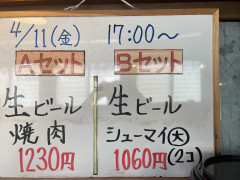 4/11(金) 17:00～
Aセット
生ビール
焼肉
1230円
Bセット
生ビール
シューマイ(大)
(2コ)
1060円